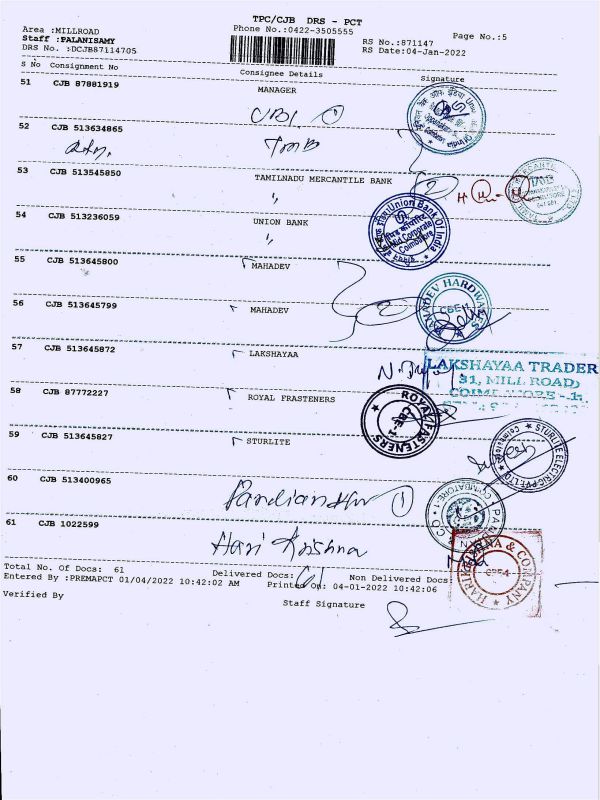 TPC/CJB DRS - PCT
Area :MILLROAD
Phone No:0422-3505555
Page No.:5
Staff :PALANISAMY
RS No.:871147
DRS No. :DCJB87114705
RS Date:04-Jan-2022
S No Consignment No Consignee Details Signature
51 CJB 87881919 MANAGER
UBI
52 CJB 513634865
TMB
53 CJB 513545850 TAMILNADU MERCANTILE BANK
54 CJB 513236059 UNION BANK
Union Bank Of India
Mid Corporate
Coimbatore
55 CJB 513645800 MAHADEV
56 CJB 513645799 MAHADEV
HARDWARES
CBE-1
57 CJB 513645872 LAKSHAYAA
LAKSHAYAA TRADER
31, MILL ROAD,
COIMBATORE - 1.
58 CJB 87772227 ROYAL FRASTENERS
ROYAL FASTENERS
CBE-1
59 CJB 513645827 STURLITE
STURLITE ELECTRIC PVT LTD
Coimbatore
60 CJB 513400965
COIMBATORE-1
61 CJB 1022599
Hari Krishna
HARIKRISHNA & COMPANY
Total No. Of Docs: 61 Delivered Docs: 61 Non Delivered Docs
Entered By :PREMAPCT 01/04/2022 10:42:02 AM Printed On: 04-01-2022 10:42:06
Verified By
Staff Signature